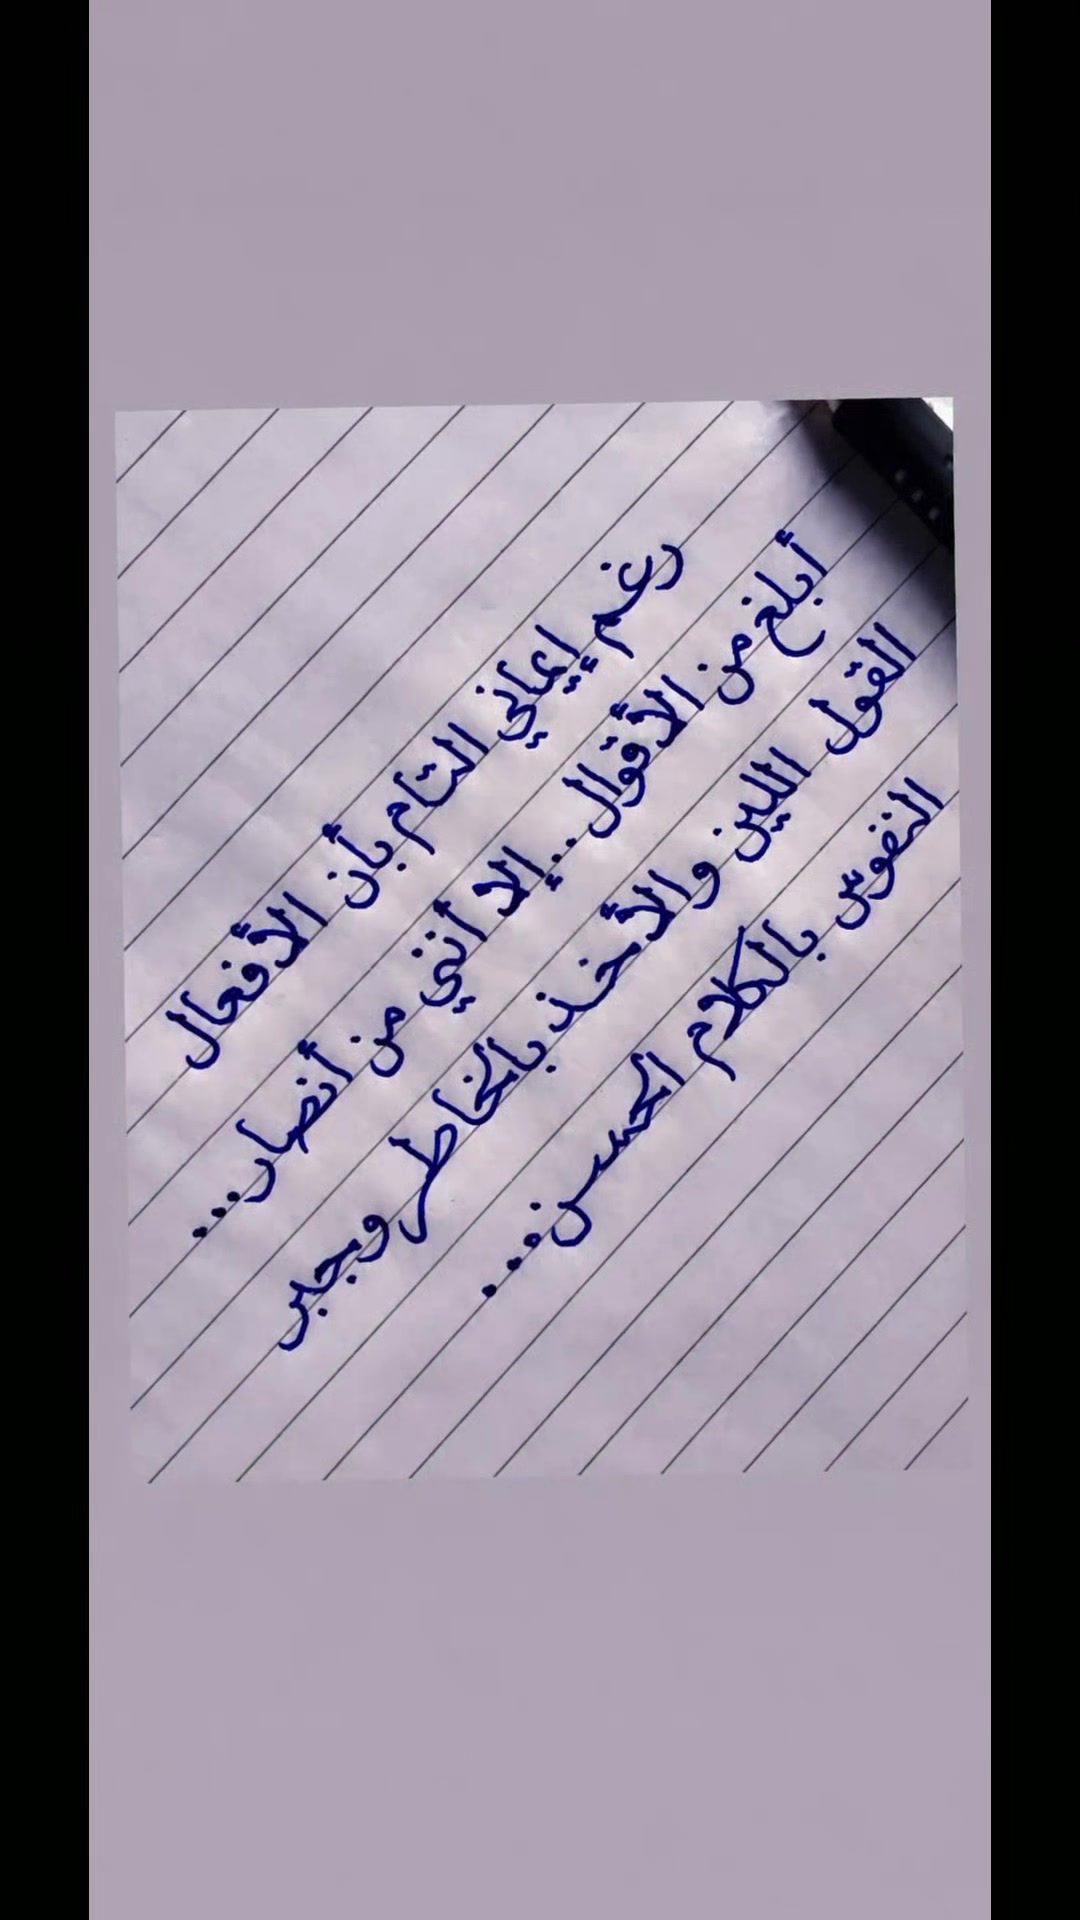 رغم إيماني التام بأن الأفعال
أبلغ من الأقوال .. إلا أنني من أنصار...
القول اللين والأخذ بالخاطر وجبر
النفوس بالكلام الحسن...